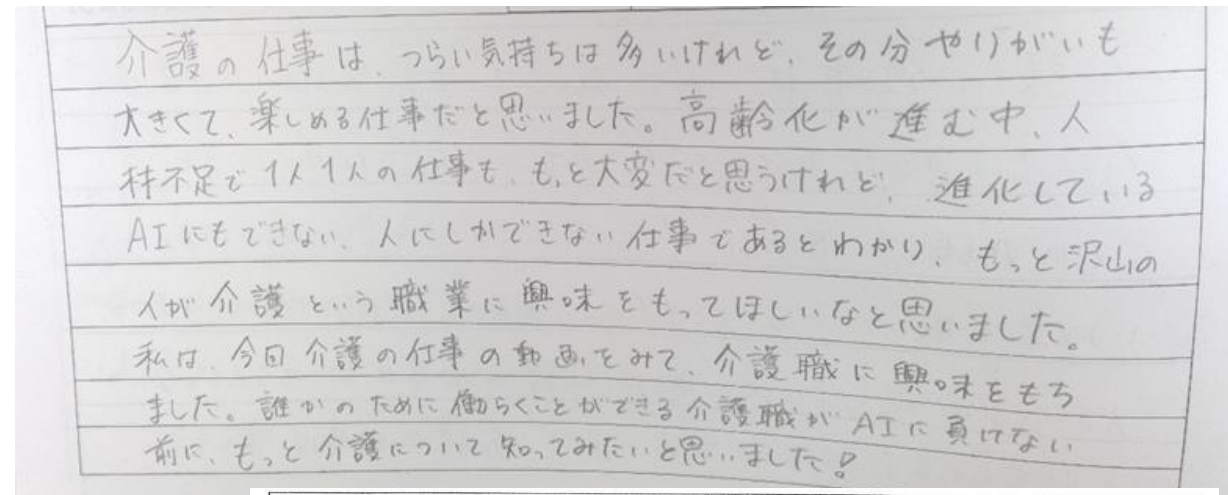 介護の仕事は、つらい気持ちは多いけれど、その分やりがいも
大きくて、楽しめる仕事だと思いました。高齢化が進む中、人
材不足で1人1人の仕事も、もっと大変だと思うけれど、進化している
AIにもできない、人にしかできない仕事であるとわかり、もっと沢山の
人が介護という職業に興味をもってほしいなと思いました。
私は、今回介護の仕事の動画をみて、介護職に興味をもち
ました。誰かのために働らくことができる介護職がAIに負けない
前に、もっと介護について知ってみたいと思いました!